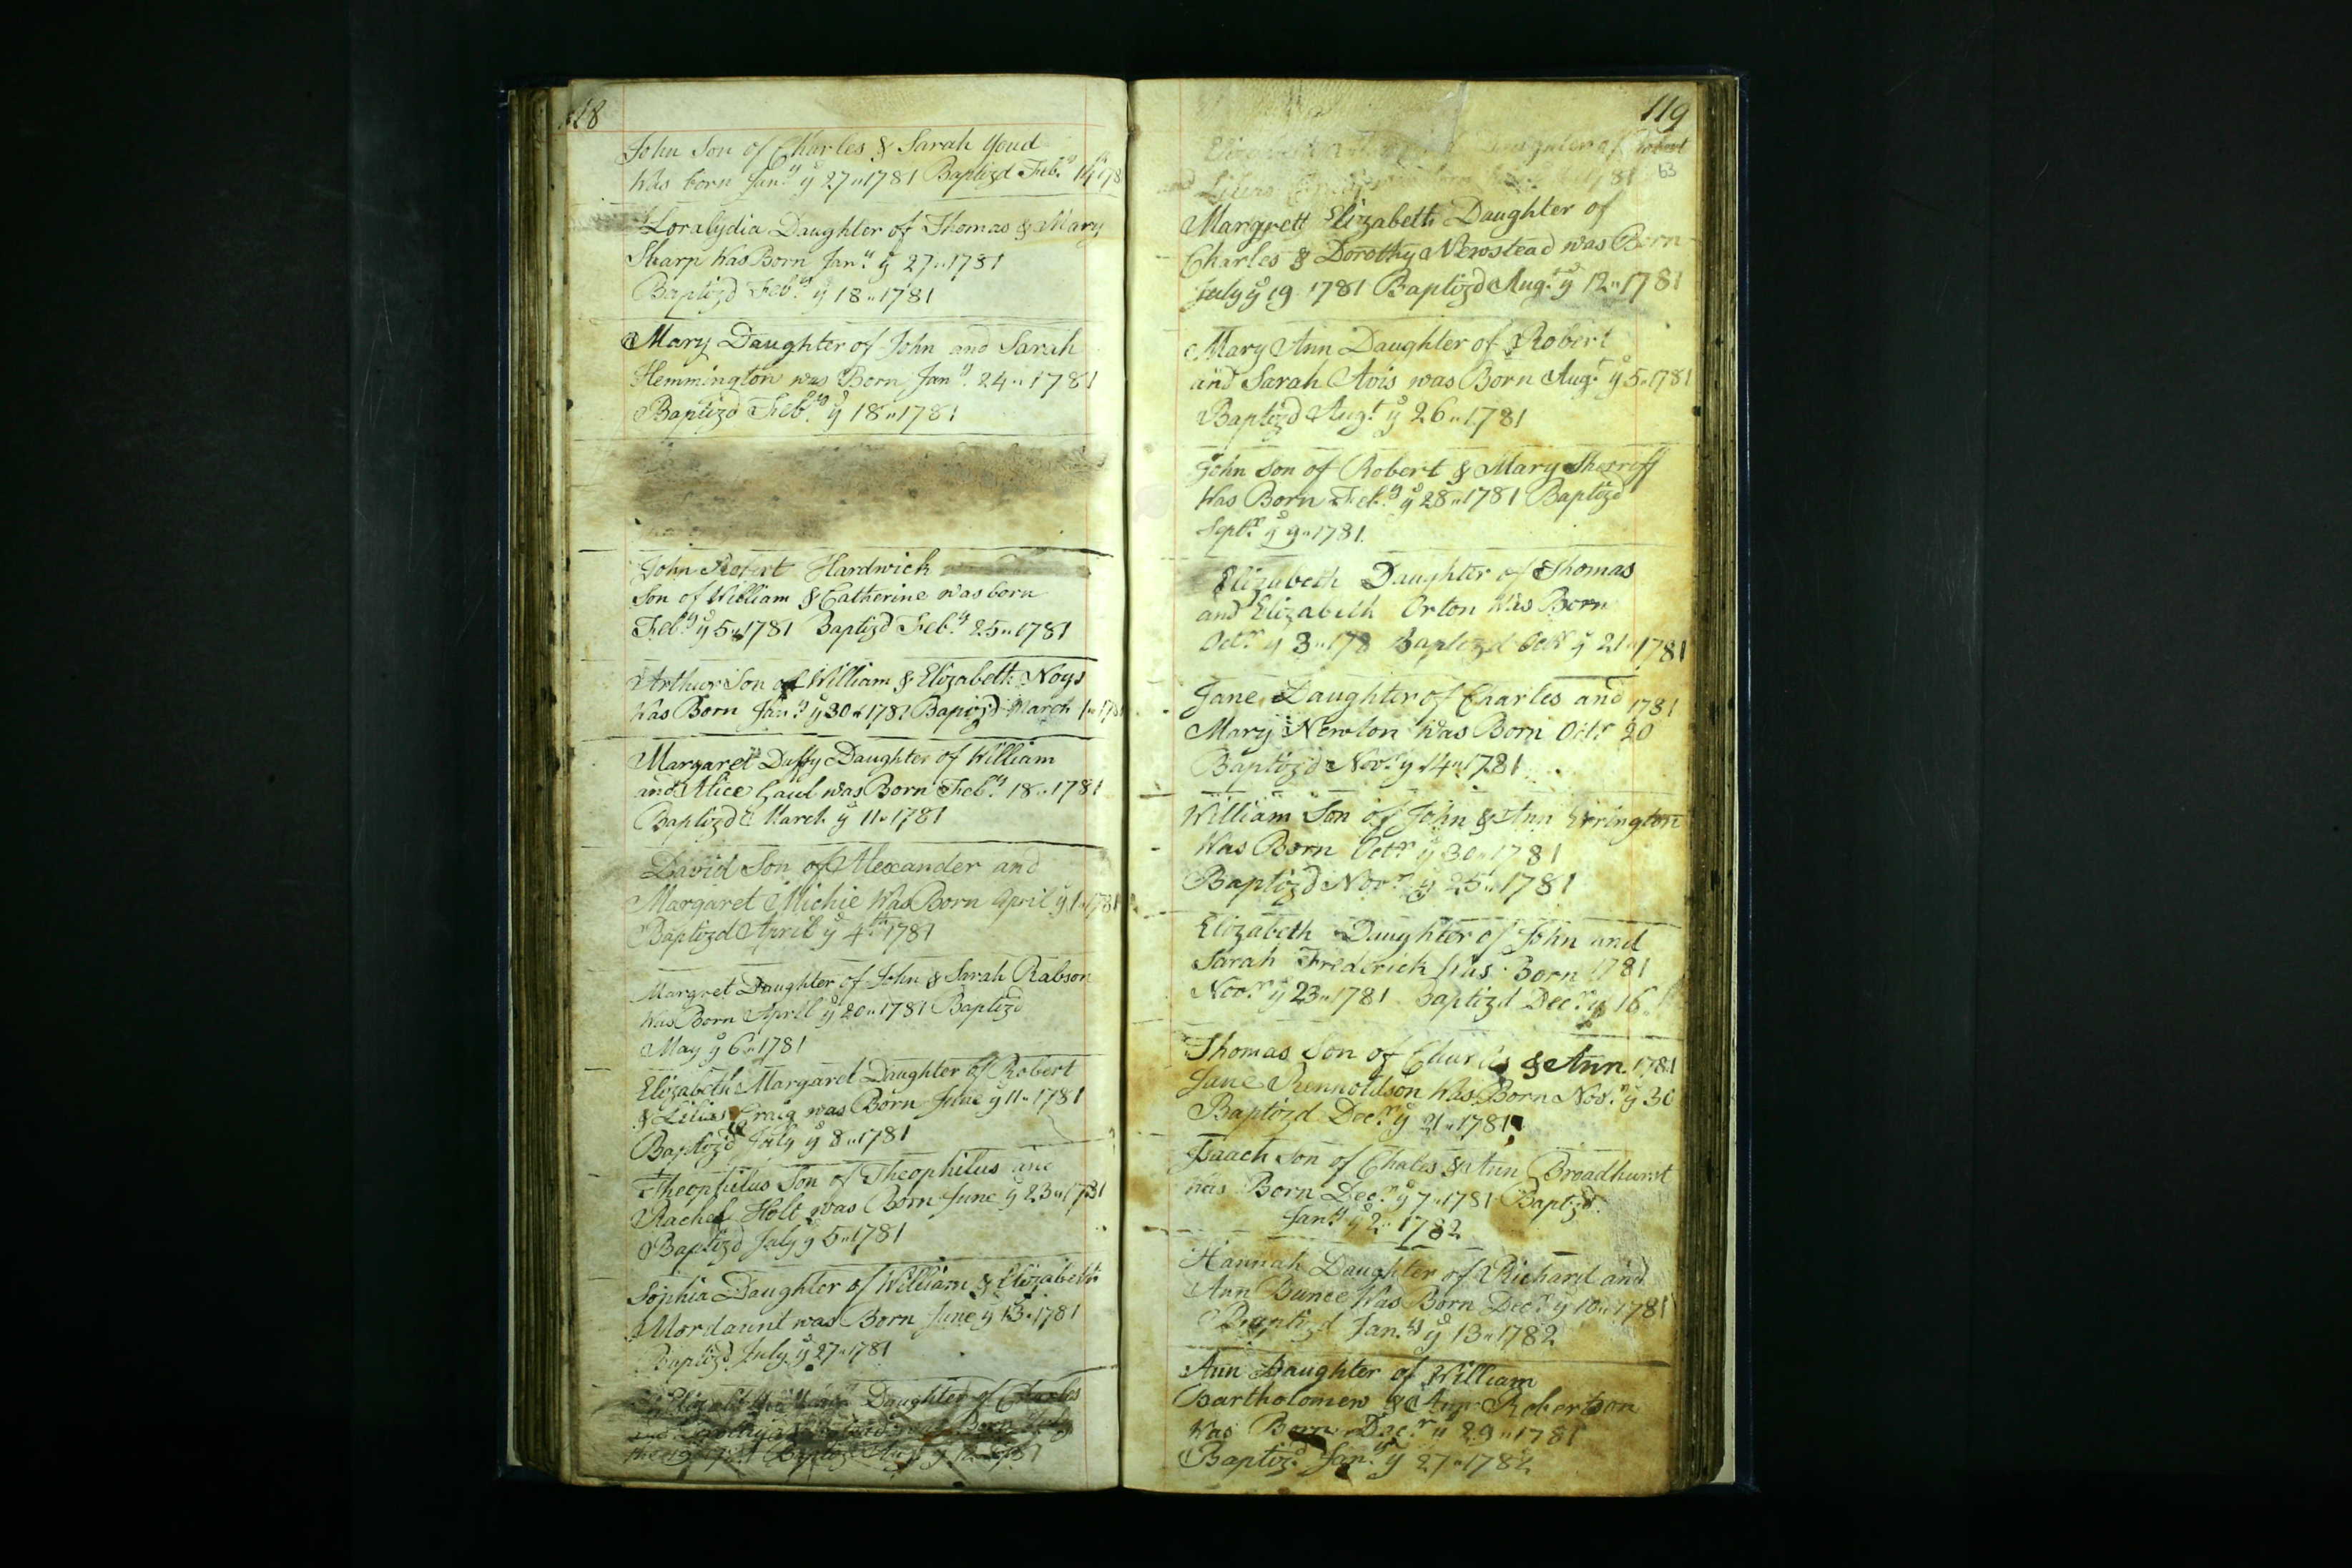 118
John Son of Charles & Sarah Youd
Was born Janry ye 27 "1781 Baptizd Febry 14th 178
Floralydia Daughter of Thomas & Mary
Sharp Was Born Janry ye 27 "1781
Baptizd Febry ye 18 "1781
Mary Daughter of John and Sarah
Hemmington was Born Janry 24 "1781
Baptizd Febry ye 18 "1781
John Robert Hardwick
Son of William & Catherine was born
Febry ye 5 "1781 Baptizd Febry 25 "1781
Arthur Son of William & Elizabeth Noys
Was Born Janry ye 30 "1781 Baptizd March 1 "178
Margaret Duffy Daughter of William
and Alice Gaul was Born Febry 18 "1781
Baptizd March ye 11 "1781
David Son of Alexander and
Margaret Michie Was Born April ye 1 "1781
Baptizd April ye 4th "1781
Margret Daughter of John & Sarah Rabson
Was Born April ye 20 "1781 Baptizd
May ye 6 "1781
Elizabeth Margaret Daughter of Robert
& Lilias Craig was Born June ye 11 "1781
Baptizd July ye 8 "1781
Theophilus Son of Theophilus and
Rachel Holt was Born June ye 23 "1781
Baptizd July ye 5 "1781
Sophia Daughter of William & Elizabeth
Mordaunt was Born June ye 13 "1781
Baptizd July ye 27 "1781
Daughter of Charles
and Born July
the 19 Baptizd Augt ye 12 1781
119
Daughter of Robert
63
and Lilias 1781
Margrett Elizabeth Daughter of
Charles & Dorothy Newstead was Born
July ye 19 1781 Baptizd Augt ye 12 "1781
Mary Ann Daughter of Robert
and Sarah Avis was Born Augt ye 5 "1781
Baptizd Augt ye 26 "1781
John Son of Robert & Mary Sherriff
Was Born Febry ye 28 "1781 Baptizd
Septr ye 9 "1781
Elizabeth Daughter of Thomas
and Elizabeth Orton Was Born
Octr ye 3 "178 Baptizd Octr ye 21 "1781
Jane Daughter of Charles and 1781
Mary Newton Was Born Octr 20
Baptizd Novr ye 14 "1781
William Son of John & Ann Errington
Was Born Octr ye 30 "1781
Baptizd Novr ye 25 "1781
Elizabeth Daughter of John and
Sarah Frederick Was Born 1781
Novr ye 23 "1781 Baptizd Decr ye 16
Thomas Son of Charles & Ann 1781
Jane Rennoldson Was Born Novr ye 30
Baptizd Decr ye 21 "1781
Isaach Son of Chales & Ann Broadhurst
was Born Decr ye 7 "1781 Baptizd
Janry ye 2 "1782
Hannah Daughter of Richard and
Ann Bunce Was Born Decr ye 10 "1781
Baptizd Janry ye 13 "1782
Ann Daughter of William
Bartholomew & Ann Robertson
Was Born Decr ye 29 "1781
Baptizd Janry ye 27 "1782